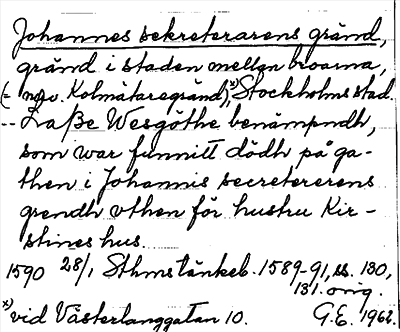 Johannes sekreterarens gränd,
gränd i staden mellan broarna,
(= nuv. Kolmätaregränd),x) Stockholms stad.
-- Laße Wesgöthe benämpndh,
som war funnitt dödh på ga-
then i Johannis secretererens
grendh vthen för hustru Kir-
stines hus.
1590 28/1 Sthms tänkeb. 1589-91, ss. 130,
131. orig.
x) vid Västerlånggatan 10. G.E. 1962.